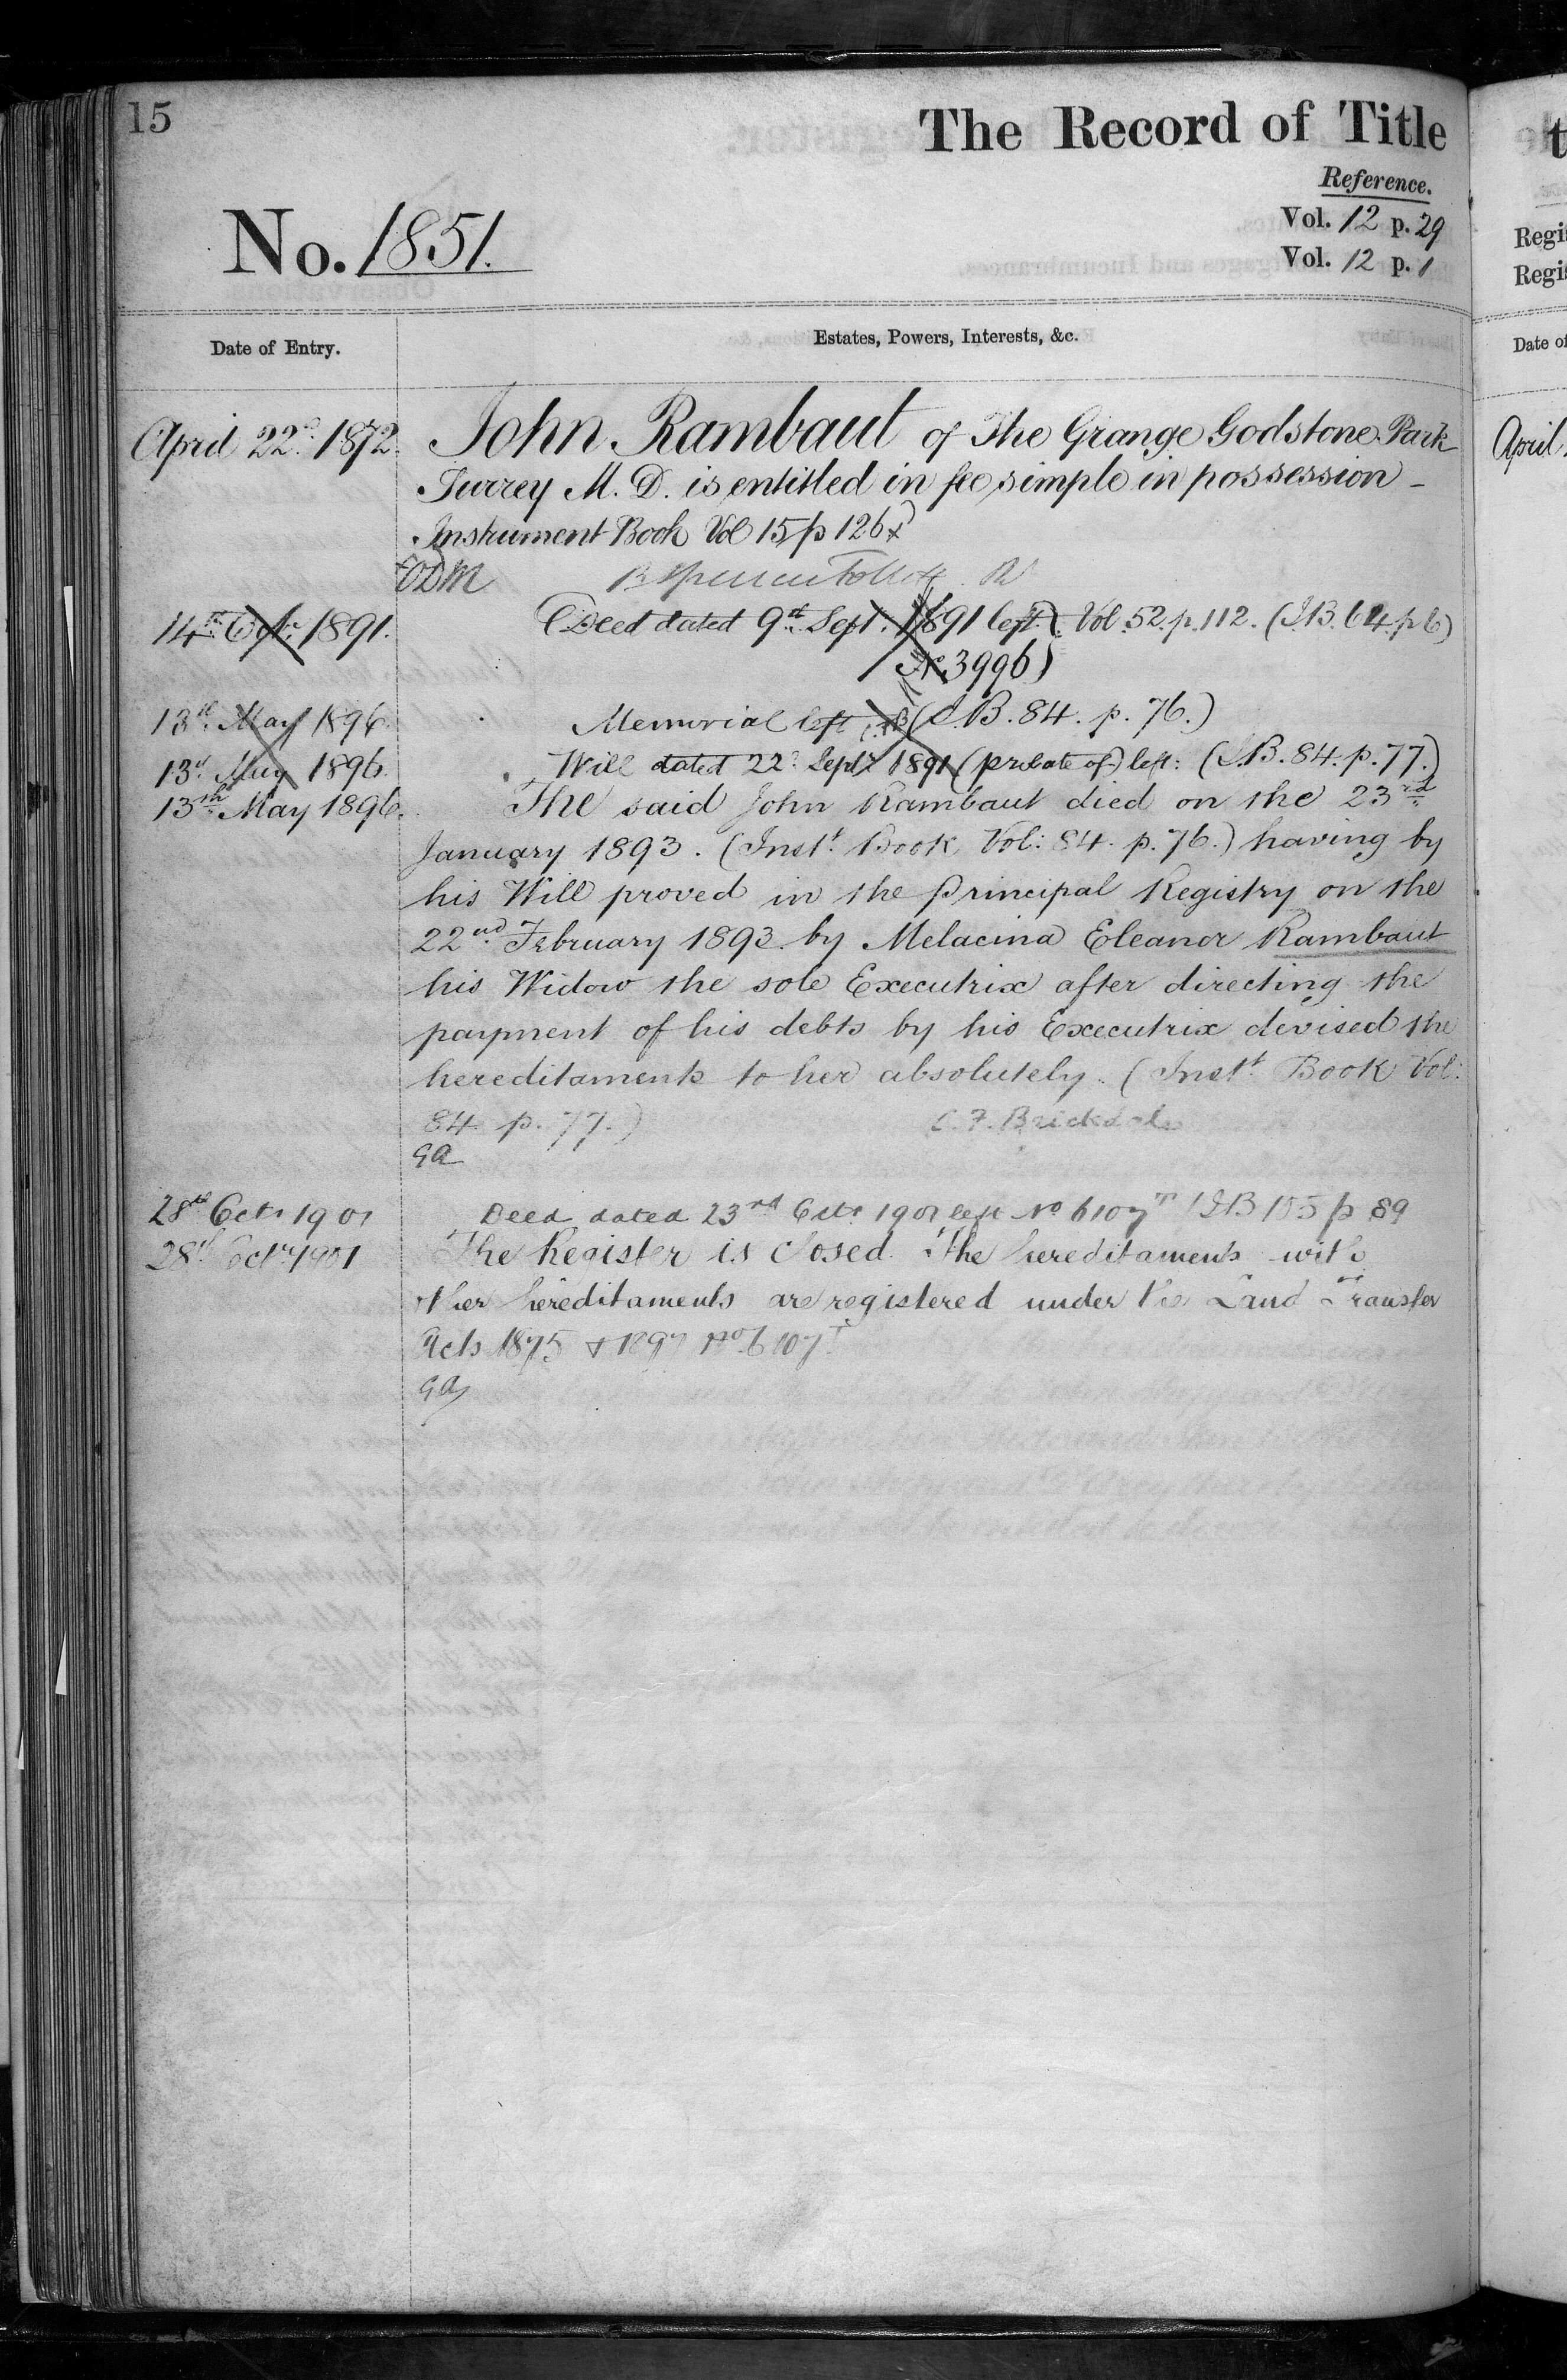 15
The Record of Title
Reference.
No. 1851.
Vol. 12 p. 29
Vol. 12 p. 1
Date of Entry.
Estates, Powers, Interests, &c.
April 22d. 1872. John Rambaut of The Grange Godstone Park
Surrey M. D. is entitled in fee simple in possession -
Instrument Book Vol 15 p 126
ODM
14th Octr. 1891. (Deed dated 9th Sept. 1891 left). Vol. 52. p. 112. (I.B. 64. p 6)
No 3996)
13th May 1896. Memorial left (I.B. 84. p. 76.)
13th May 1896. Will dated 22d Septr 1891 (probate of) left: (I.B. 84. p. 77.)
13th May 1896. The said John Rambaut died on the 23rd
January 1893. (Inst. Book Vol: 84. p. 76.) having by
his Will proved in the Principal Registry on the
22nd February 1893 by Melacina Eleanor Rambaut
his Widow the sole Executrix after directing the
payment of his debts by his Executrix devised the
hereditaments to her absolutely. (Inst. Book Vol:
84 p. 77.) C. F. Brickdale
GA
28th Octr 1901 Deed dated 23rd Octr 1901 left No 6107T IB 105 p 89
28th Octr 1901 The Register is Closed. The hereditaments with
other hereditaments are registered under the Land Transfer
Acts 1875 & 1897 No. 6107T
GA
t
Regi
Regi
Date of
April